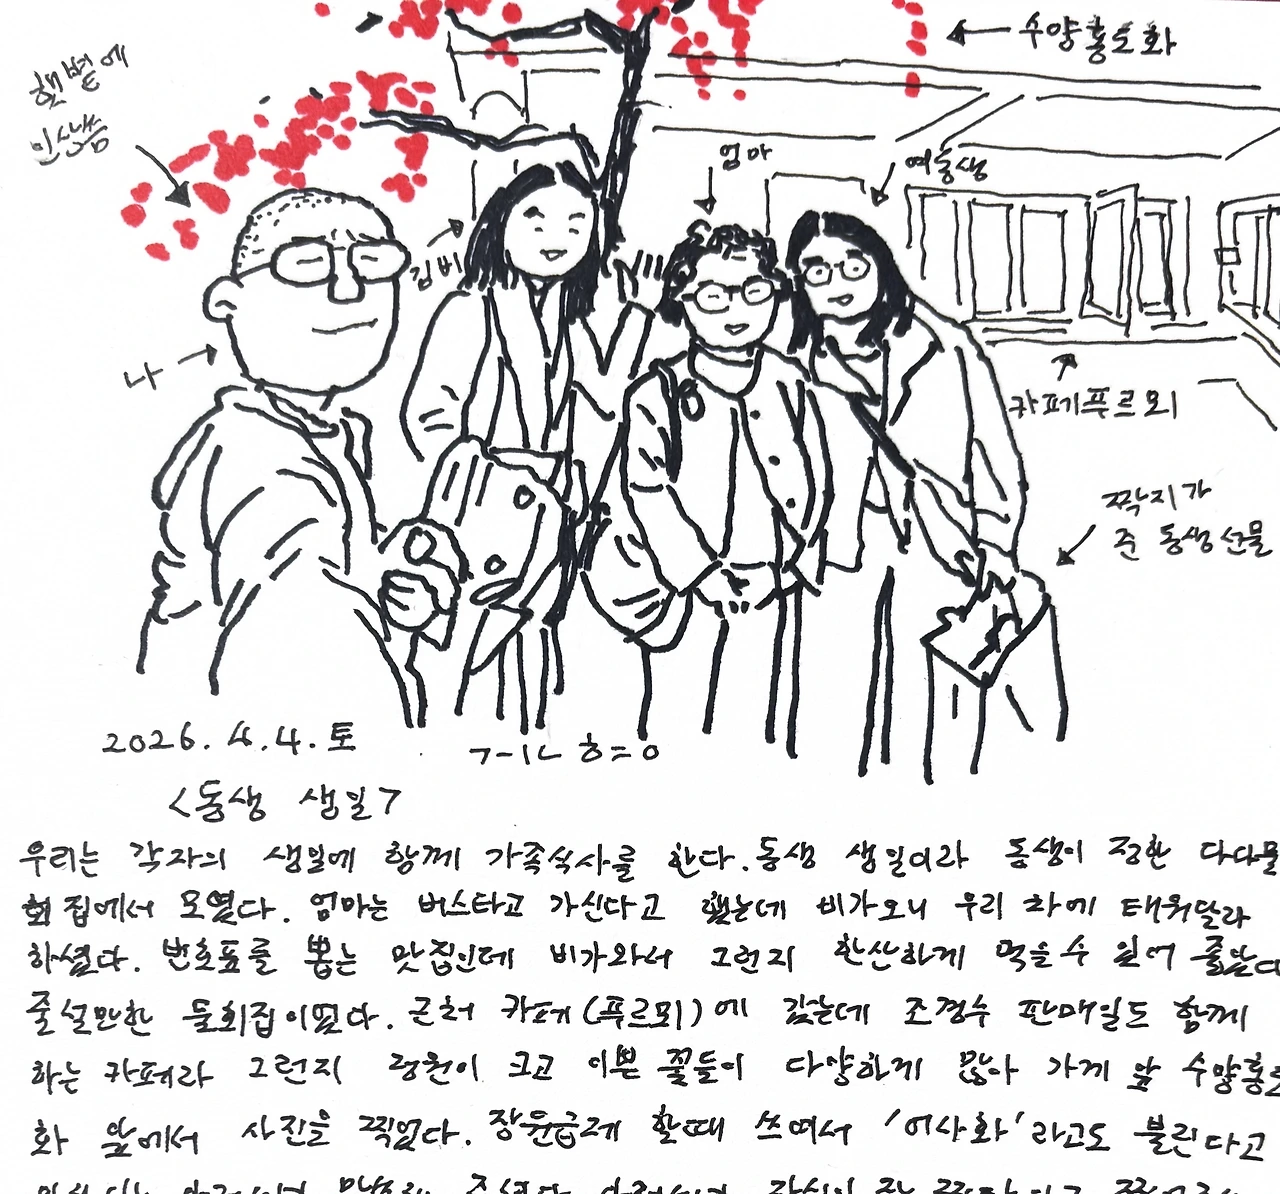 수양홍도화
햇볕에
인상씀
엄마
여동생
김비
나
카페푸르외
짝지가
준 동생선물
2026. 4. 4. 토
<동생 생일>
우리는 각자의 생일에 함께 가족식사를 한다. 동생 생일이라 동생이 정한 다대물
회집에서 모였다. 엄마는 버스타고 가신다고 했는데 비가오니 우리 차에 태워달라
하셨다. 번호표를 뽑는 맛집인데 비가와서 그런지 한산하게 먹을 수 있어 좋았다
줄설만한 물회집이었다. 근처 카페(푸르외)에 갔는데 조경수 판매일도 함께
하는 카페라 그런지 정원이 크고 이쁜 꽃들이 다양하게 많아 가게 앞 수양홍도
화 앞에서 사진을 찍었다. 장원급제 할때 쓰여서 '어사화'라고도 불린다고